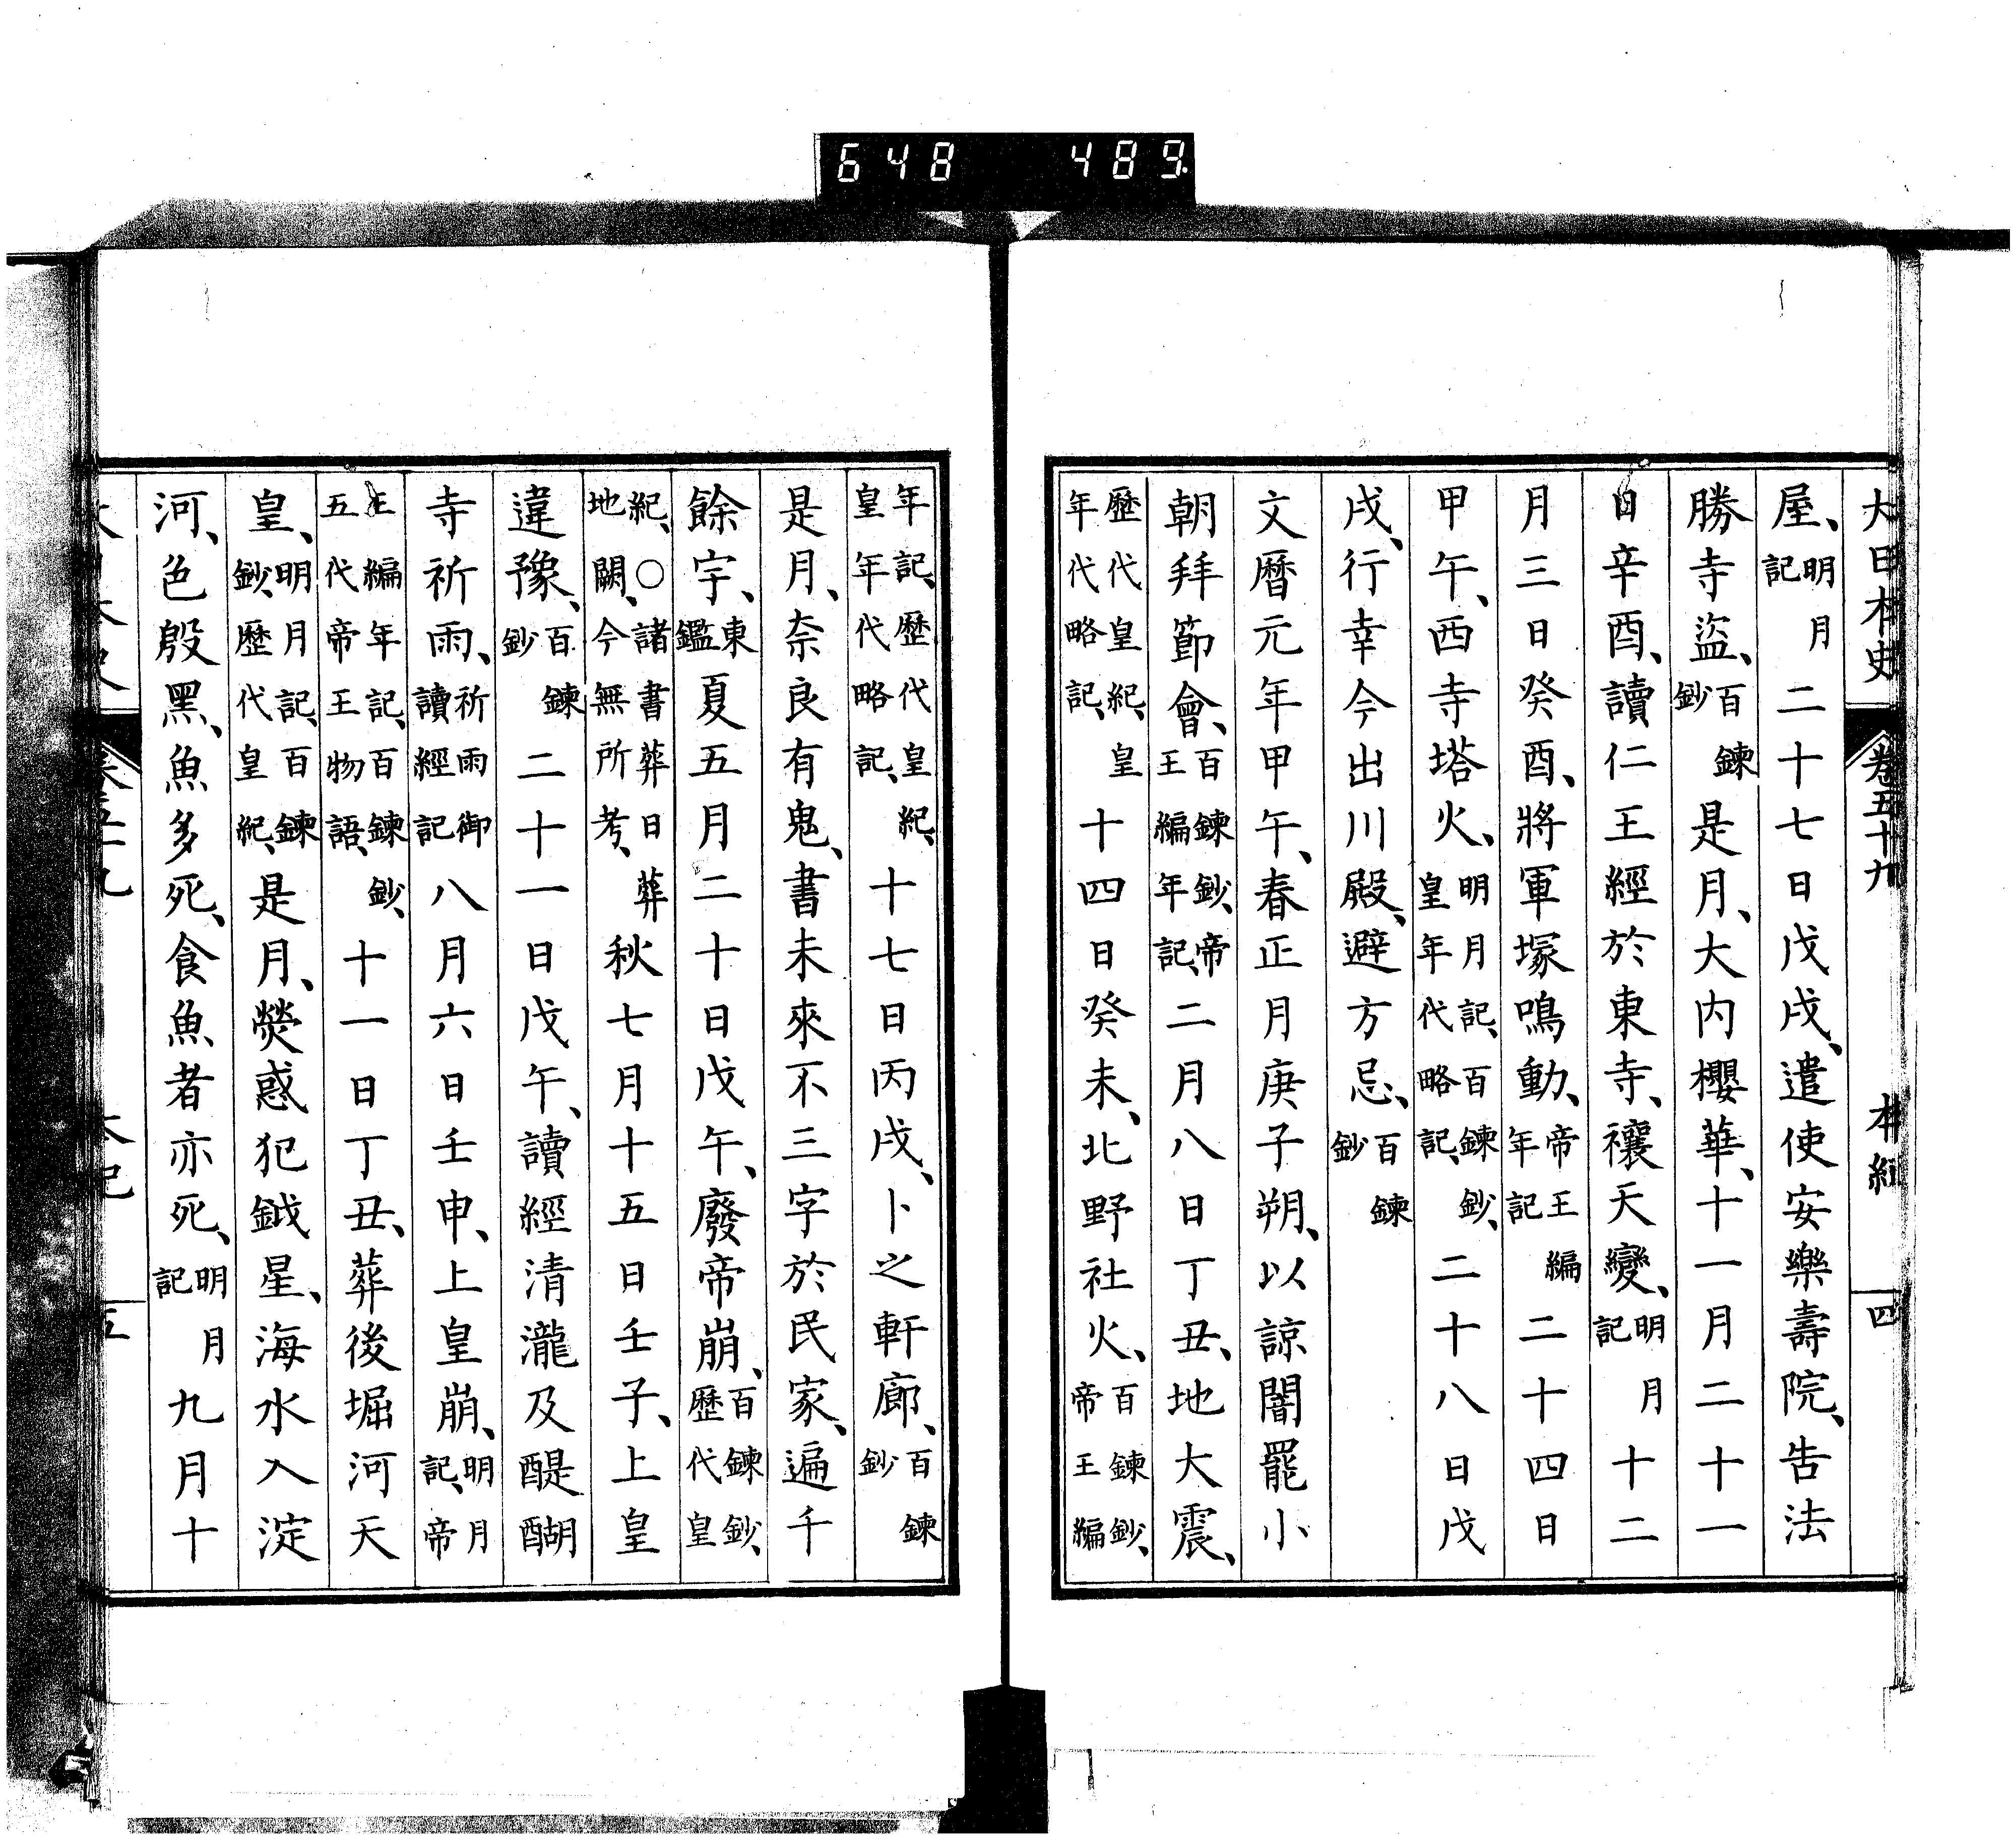 648 489
大日本史 卷五十九 本紀 四
屋、明月記二十七日戊戌、遣使安樂壽院、告法
勝寺盜、百鍊鈔是月、大内櫻華、十一月二十一
日辛酉、讀仁王經於東寺、禳天變、明月記十二
月三日癸酉、將軍塚鳴動、帝王編年記二十四日
甲午、西寺塔火、明月記、百鍊鈔、皇年代略記、二十八日戊
戌、行幸今出川殿、避方忌、百鍊鈔
文暦元年甲午、春正月庚子朔、以諒闇罷小
朝拜節會、百鍊鈔、帝王編年記、二月八日丁丑、地大震、
歷代皇紀、皇年代略記、十四日癸未、北野社火、百鍊鈔、帝王編
年記、歷代皇紀、皇年代略記、十七日丙戌、卜之軒廊、百鍊鈔
是月、奈良有鬼、書未來不三字於民家、遍千
餘宇、東鑑夏五月二十日戊午、廢帝崩、百鍊鈔、歷代皇
紀、○諸書葬日葬地闕、今無所考、秋七月十五日壬子、上皇
違豫、百鍊鈔二十一日戊午、讀經清瀧及醍醐
寺祈雨、祈雨御讀經記八月六日壬申、上皇崩、明月記、帝
王編年記、百鍊鈔、五代帝王物語、十一日丁丑、葬後堀河天
皇、明月記、百鍊鈔、歷代皇紀、是月、熒惑犯鉞星、海水入淀
河、色殷黑、魚多死、食魚者亦死、明月記九月十